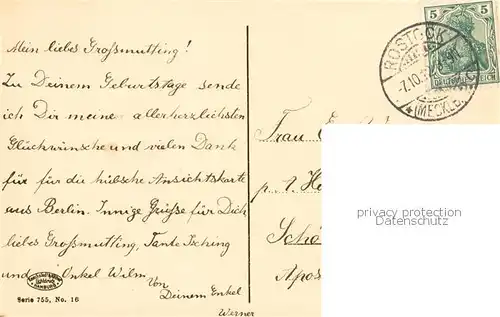 Mein liebes Großmutting!
Zu Deinem Geburtstage sende
ich Dir meine allerherzlichsten
Glückwünsche und vielen Dank
für für die hübsche Ansichtskarte
aus Berlin. Innige Grüße für Dich
liebes Großmutting, Tante Tsching
und Onkel Wilm
Von
Deinem Enkel
Werner
Serie 755, No. 16
5 5
ROSTOCK
-7.10.
(MECKLB.)
Frau
p. A.
Schö
Apos
privacy protection
Datenschutz